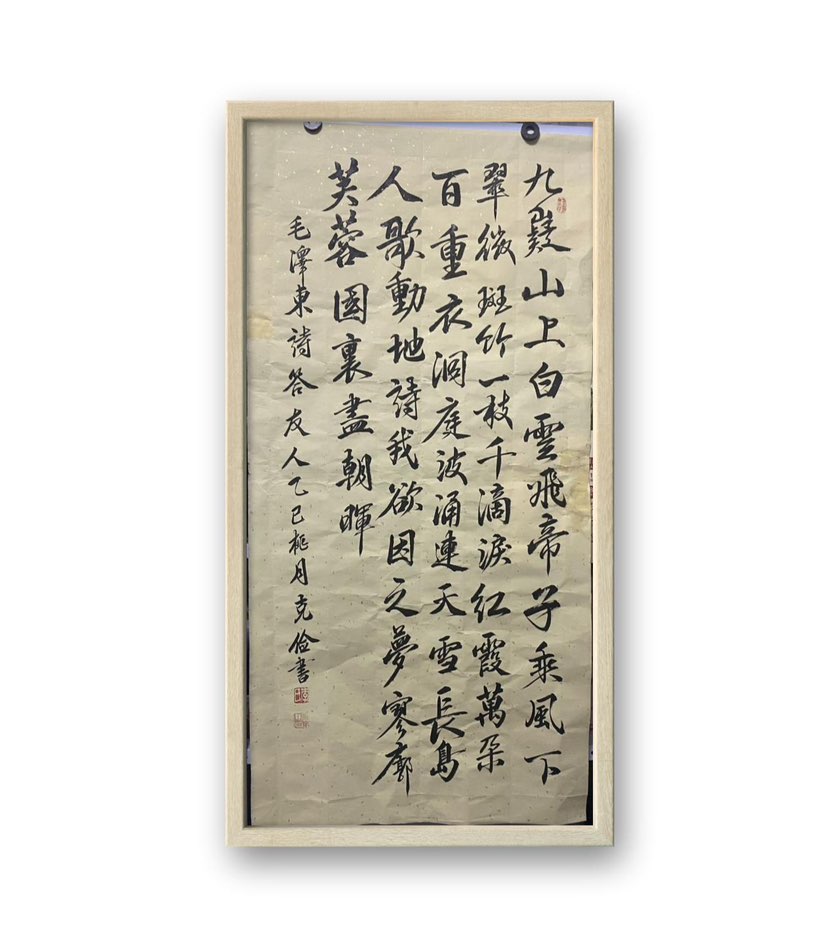 九嶷山上白雲飛帝子乘風下
翠微斑竹一枝千滴淚紅霞萬朵
百重衣洞庭波涌連天雪長島
人歌動地詩我欲因之夢寥廓
芙蓉國裏盡朝暉
毛澤東詩答友人乙巳桃月克俭書